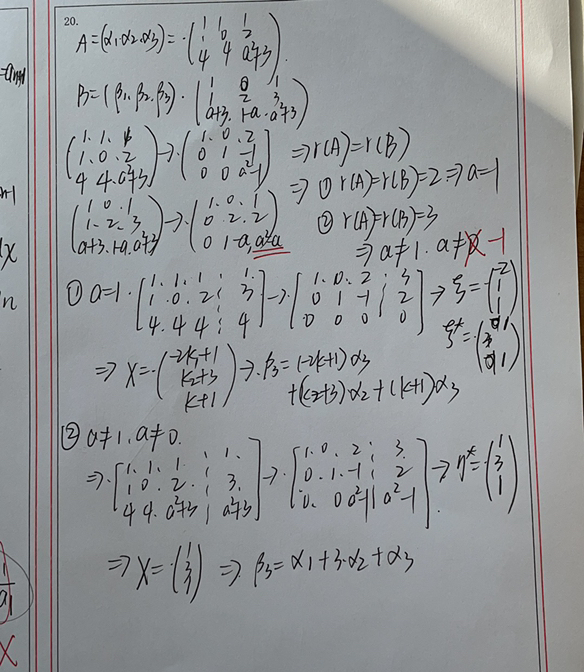 20.
A=(α₁.α₂.α₃)=.(1 1 1 / 1 0 2 / 4 4 a²+3).
B=(β₁.β₂.β₃).(1 0 1 / 1 2 3 / a+3. 1-a. a²+3)
(1. 1. 1 / 1. 0. 2 / 4 4. a²+3)→.(1. 0. 2 / 0 1 -1 / 0 0 a²-1) ⇒r(A)=r(B)
⇒ ① r(A)=r(B)=2⇒a=1
(1 0 1 / 1. 2. 3 / a+3. 1-a. a²+3)→.(1. 0. 1 / 0. 2. 2 / 0 1-a, a²-a) ② r(A)=r(B)=3
⇒ a≠1. a≠ -1
① a=1.[1. 1. 1 ¦ 1 / 1. 0. 2 ¦ 3 / 4. 4. 4 ¦ 4]→.[1. 0. 2 ¦ 3 / 0 1 -1 ¦ 2 / 0 0 0 ¦ 0]→ ξ=.(-2 / 1 / 1)
⇒ X=.(-2k+1 / k+3 / k+1)→.β₃=(-2k+1)α₃
+(k+3).α₂+(k+1)α₃
② a≠1. a≠0.
⇒.[1. 1. 1 ¦ 1. / 1 0. 2. ¦ 3. / 4 4. a²+3 ¦ a²+3]→.[1. 0. 2 ¦ 3. / 0. 1. -1 ¦ 2 / 0. 0 a²-1 ¦ a²-1]→ η*=.(1 / 3 / 1)
⇒ X=.(1 / 3 / 1) ⇒ β₃=α₁+3.α₂+α₃